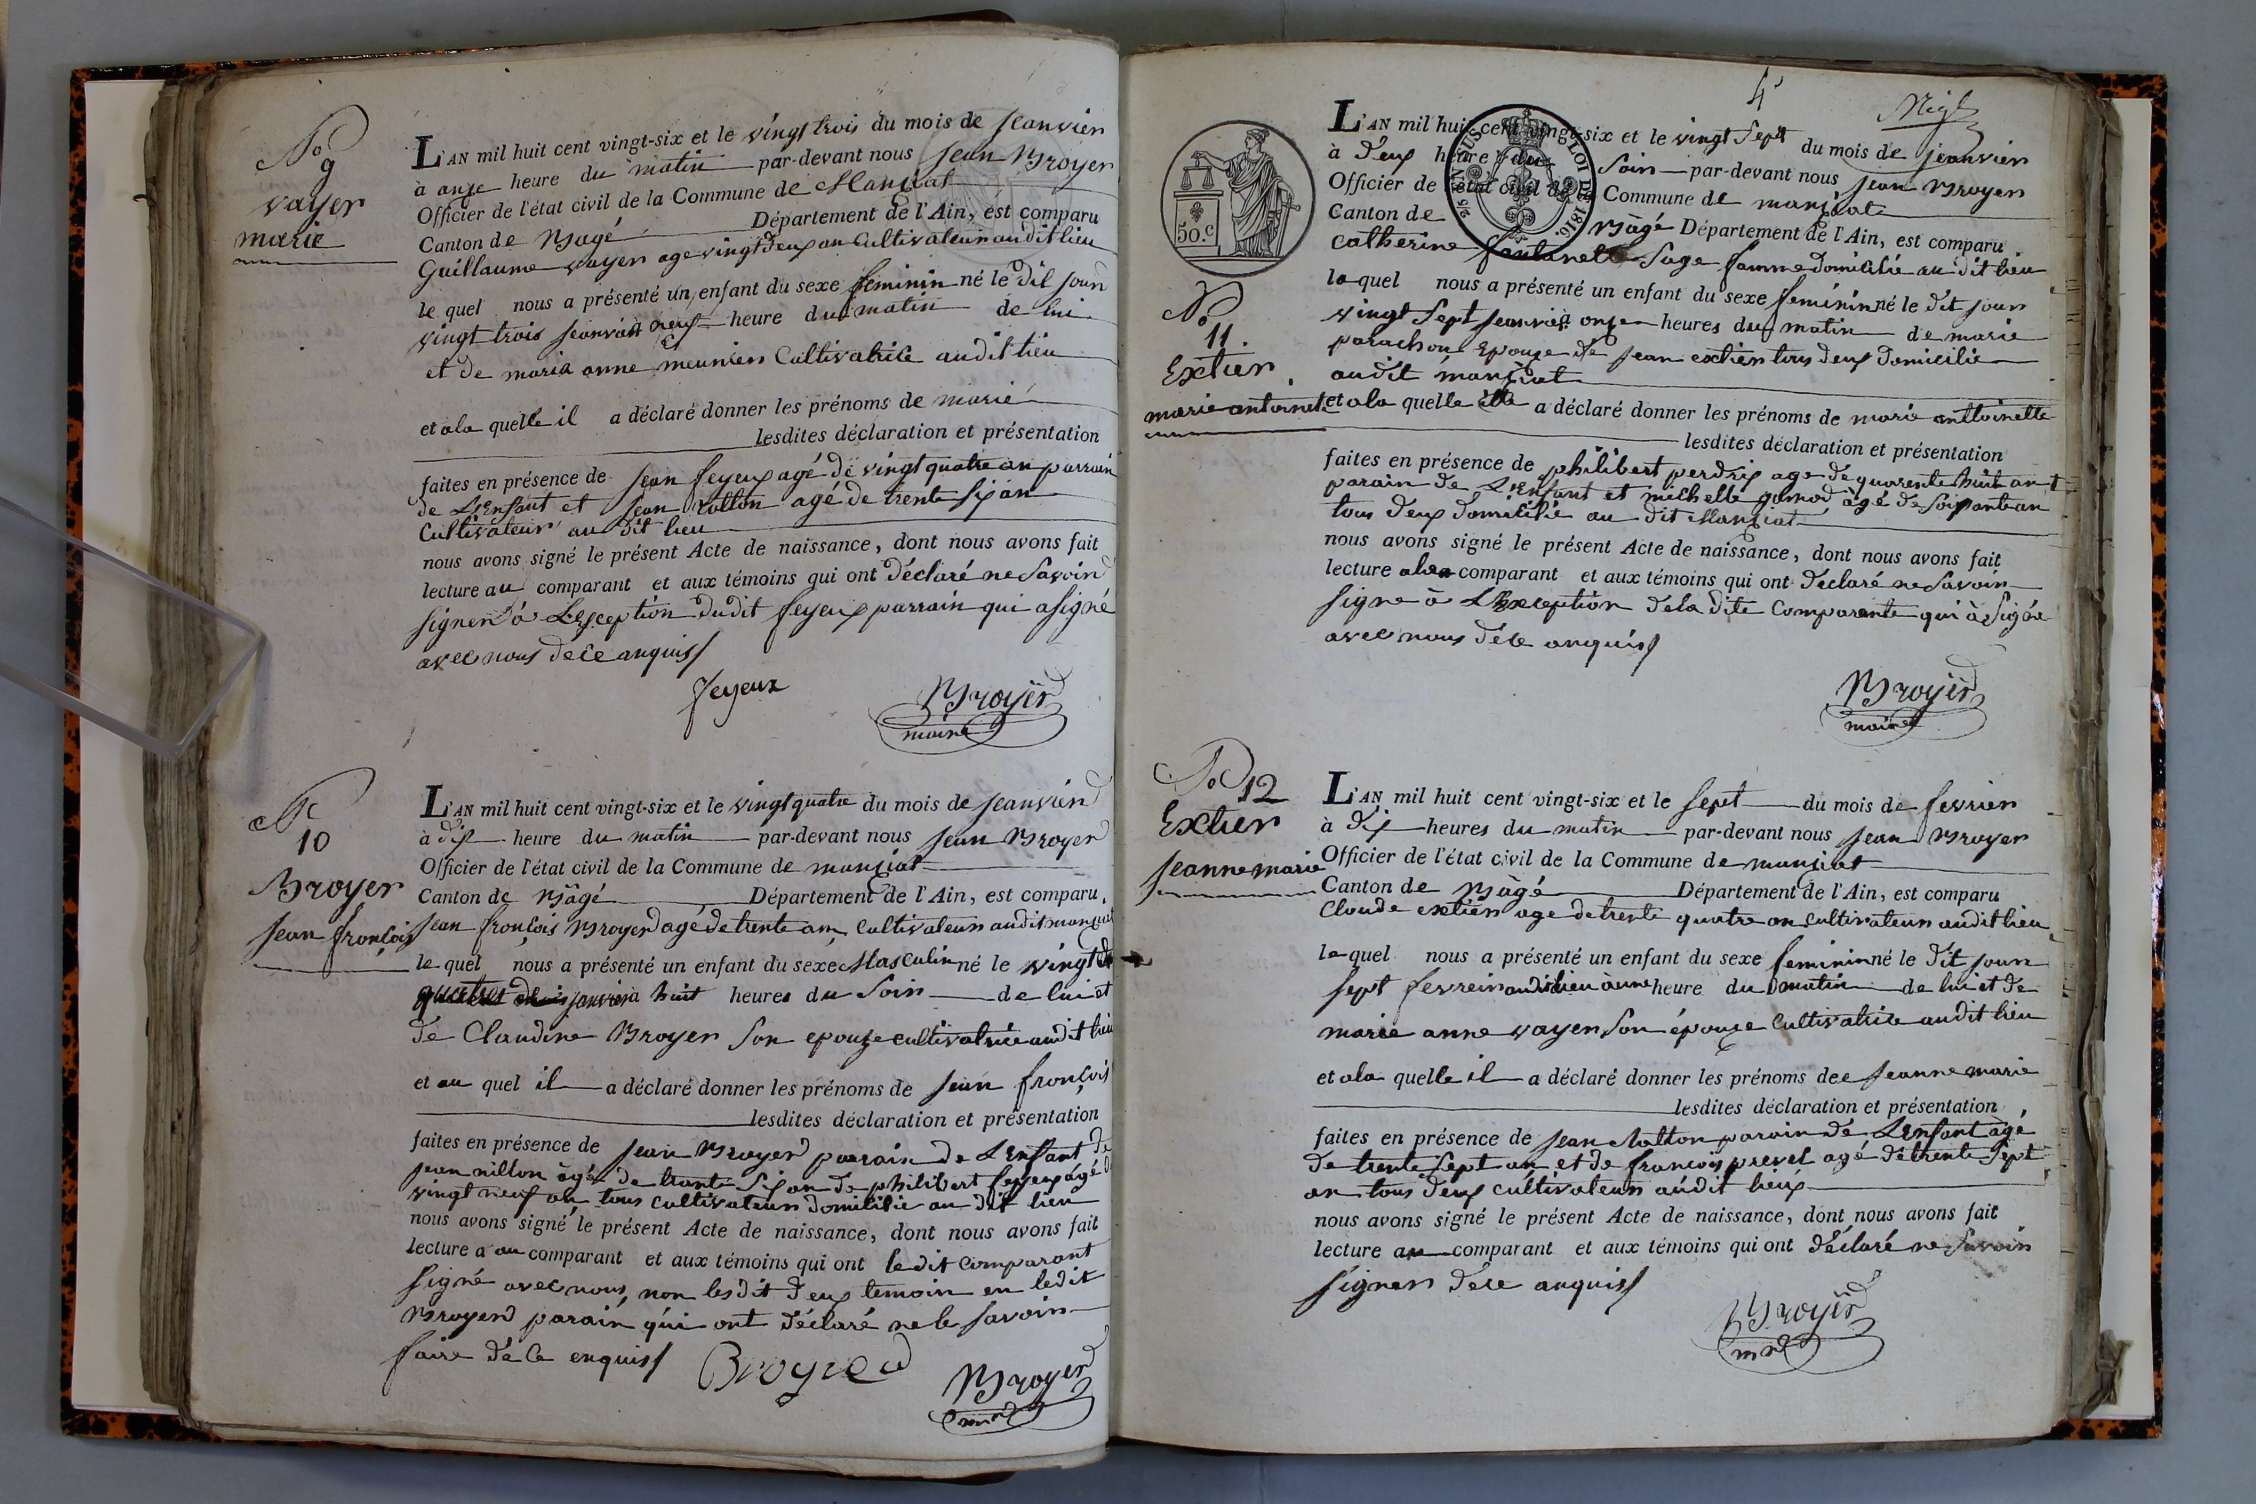 No
9
vayer
marie
L'AN mil huit cent vingt-six et le vingt trois du mois de Jeanvier
à onze heure du matin par-devant nous Jean Broyer
Officier de l'état civil de la Commune de Manziat
Canton de Bâgé Département de l'Ain, est comparu
Guillaume vayer age vingt deux an Cultivateur au dit lieu
le quel nous a présenté un enfant du sexe feminin né le dit jour
vingt trois jeanvier neuf heure du matin de lui
et de maria anne meunier Cultivatrice au dit lieu
et a la quelle il a déclaré donner les prénoms de marie
lesdites déclaration et présentation
faites en présence de Jean feyeux agé de vingt quatre an parrain
de L'Enfant et Jean Catton agé de trente six an
Cultivateur au dit lieu
nous avons signé le présent Acte de naissance, dont nous avons fait
lecture au comparant et aux témoins qui ont déclaré ne Savoir
signer à L'Esception dudit feyeux parrain qui a signé
avec nous de ce anquis
feyeux
Broyer
maire
No
10
Broyer
Jean françois
L'AN mil huit cent vingt-six et le vingt quatre du mois de Jeanvier
à dix heure du matin par-devant nous Jean Broyer
Officier de l'état civil de la Commune de manziat
Canton de Bâgé Département de l'Ain, est comparu
Jean françois Broyer agé de trente an Cultivateur au dit manziat
le quel nous a présenté un enfant du sexe Masculin né le vingt
janvier à huit heures du Soir de lui et
de Claudine Broyer Son epouze cultivatrice au dit lieu
et au quel il a déclaré donner les prénoms de Jean françois
lesdites déclaration et présentation
faites en présence de Jean Broyer parrain de L'Enfant de
Jean nillon âgé de trante Six an de philibert feyeux âgé de
vingt neuf an tous cultivateur domicilié au dit lieu
nous avons signé le présent Acte de naissance, dont nous avons fait
lecture a au comparant et aux témoins qui ont le dit comparant
Signé avec nous non les dit deux temoin en ledit
Broyer parain qui ont déclaré ne le savoir
faire de ce enquis
Broyer
Broyer
mre
4
50.C
LOI DE 1816
L'AN mil huit cent vingt-six et le vingt Sept du mois de jeanvier
à deux heure du Soir par-devant nous Jean Broyer
Officier de l'état civil de Commune de manziat
Canton de Bâgé Département de l'Ain, est comparu
Catherine fontanelle Sage famme domicilié au dit lieu
la quel nous a présenté un enfant du sexe feminin né le dit jour
vingt Sept jeanvier onze heures du matin de marie
parachon Epouze de Jean extier tous deux domicilié
au dit manziat
No
11.
Extier
marie antoinette
et a la quelle elle a déclaré donner les prénoms de marie antoinette
lesdites déclaration et présentation
faites en présence de philibert perdrix age de quarente huit an
parain de L'Enfant et michelle gonod âgé de Soixante an
tous deux domicilié au dit Manziat
nous avons signé le présent Acte de naissance, dont nous avons fait
lecture a la comparant et aux témoins qui ont déclaré ne Savoir
signe à L'Exception de la dite Comparente qui à Signe
avec nous de ce anquis
Broyer
maire
No 12
Extier
Jeanne marie
L'AN mil huit cent vingt-six et le sept du mois de fevrier
à dix heures du matin par-devant nous Jean Broyer
Officier de l'état civil de la Commune de manziat
Canton de Bâgé Département de l'Ain, est comparu
Claude extier age de trente quatre an cultivateur au dit lieu
le quel nous a présenté un enfant du sexe feminin né le dit jour
sept fevreir au dit lieu à une heure du matin de lui et de
marie anne vayer Son épouze Cultivatrice au dit lieu
et a la quelle il a déclaré donner les prénoms de Jeanne marie
lesdites déclaration et présentation
faites en présence de Jean Catton parain de L'Enfant âgé
de trente Sept an et de francois prevel agé de trente Sept
an tous deux cultivateur au dit lieux
nous avons signé le présent Acte de naissance, dont nous avons fait
lecture au comparant et aux témoins qui ont déclaré ne Savoir
signer de ce anquis
Broyer
mre